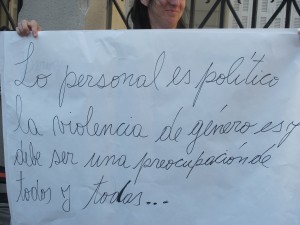 Lo personal es político
la violencia de género es y
debe ser una preocupación de
todos y todas...